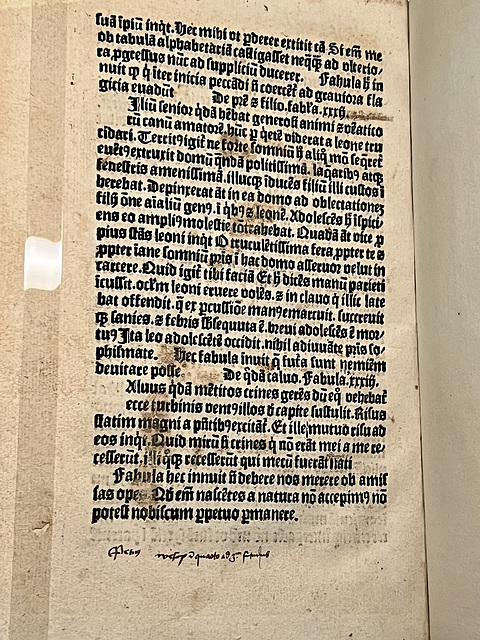 suā ipiū inqt. Hec mihi ut pderer extitit cā Si em̄ me
ob tabulā alphabetariā castigasset neqꝫ ad ulterio-
ra ꝓgressus nūc ad suppliciū ducerer. Fabula ꝑ in
nuit ꝙ q̄ iter inicia peccādi n̄ coercēt ad grauiora fla
gicia euadūt De prē ⁊ filio. fabla. xxxij.
Iliū senior qdā hēbat generosi animi ⁊ venatico
rū canū amatorē. hūc ꝑ qetē viderat a leone tru
cidari. Territꝰ igit ne forte somniū h̄ aliq̄ mō seqret
euētꝰ extruxit domū qndā politissimā. laqaribꝰ atqꝫ
fenestris amenissimā. illucqꝫ iducēs filiū illi custos i
herebat. Depinxerat āt in ea domo ad oblectationeꝫ
filij one aīaliū genꝰ. i qbꝰ ⁊ leonē. Adolescēs h̄ ispici-
ens eo ampliꝰ molestie cōtrahebat. Quadā āt vice ꝓ
pius stās leoni inqt O truculētissima fera. ꝓpter te ⁊
ꝓpter iane somniū prīs i hac domo asseruor velut in
carcere. Quid igit tibi faciā Et h̄ dicēs manū parieti
icussit. oclm leoni eruere volēs. ⁊ in clauo q illic late
bat offendit. q̄ ex ꝑcussione manꝰ emarcuit. succreuit
qꝫ sanies. ⁊ febris sb̄sequuta ē. breui adolescēs ē mor-
tuꝰ Ita leo adolescētē occidit. nihil adiuuāte prīs so-
phismate. Hec fabula inuit q̄ futa sunt neminē
deuitare posse. De qdā caluo. Fabula. xxxiij.
Aluus qdā mētitos crines gerēs dū eqꝰ vehebat
ecce turbinis ventꝰ illos d̄ capite sustulit. Risus
statim magni a pn̄tibꝰ excitat. Et ille mutuo risu ad
eos inqt. Quid mirū si crines q̄ nō erāt mei a me re-
cesserūt. illi qꝫ recesserūt qui mecū fuerāt nati
Fabula hec innuit n̄ debere nos merere ob amis
sas opes Qd em̄ nascētes a natura nō accepimꝰ nō
potest nobiscum ꝑpetuo ꝑmanere.